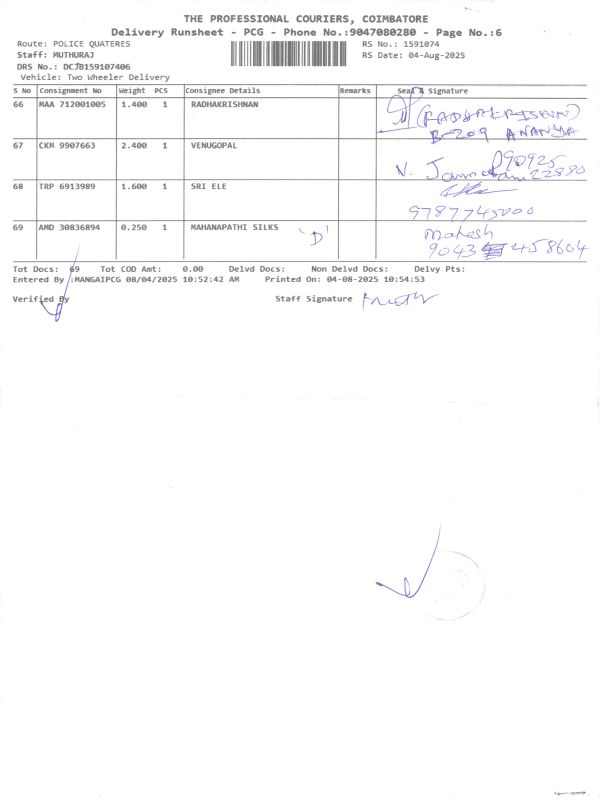 THE PROFESSIONAL COURIERS, COIMBATORE
Delivery Runsheet - PCG - Phone No.:9047080280 - Page No.:6
Route: POLICE QUATERES RS No.: 1591074
Staff: MUTHURAJ RS Date: 04-Aug-2025
DRS No.: DCJB159107406
Vehicle: Two Wheeler Delivery
S No Consignment No Weight PCS Consignee Details Remarks Seal & Signature
66 MAA 712001005 1.400 1 RADHAKRISHNAN (RADHAKRISHNAN)
B-209 ANANYA
67 CKM 9907663 2.400 1 VENUGOPAL
V.
68 TRP 6913989 1.600 1 SRI ELE
9787745000
69 AMD 30836894 0.250 1 MAHANAPATHI SILKS 'D' Mahesh
9043 458604
Tot Docs: 69 Tot COD Amt: 0.00 Delvd Docs: Non Delvd Docs: Delvy Pts:
Entered By :MANGAIPCG 08/04/2025 10:52:42 AM Printed On: 04-08-2025 10:54:53
Verified By Staff Signature